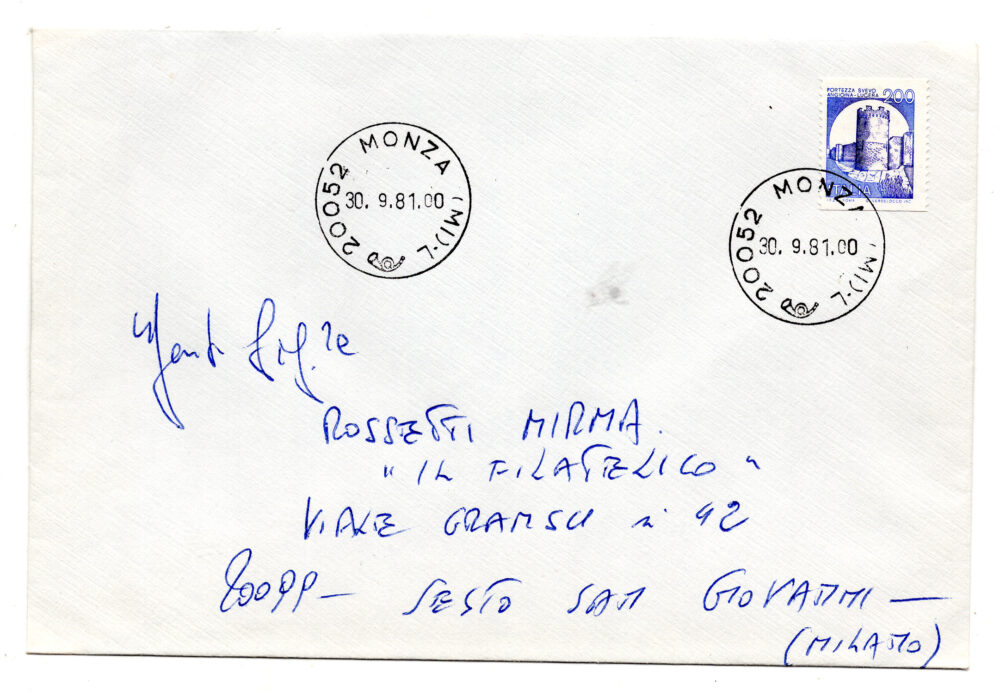 FORTEZZA SVEVO
ANGIOINA-LUCERA 200
ITALIA
20052 MONZA (MI)-L
30. 9.81.00
20052 MONZA (MI)-L
30. 9.81.00
ROSSETTI MIRMA.
"IL FILATELICO"
VIALE GRAMSCI n° 42
20099 - SESTO SAN GIOVANNI -
(MILANO)